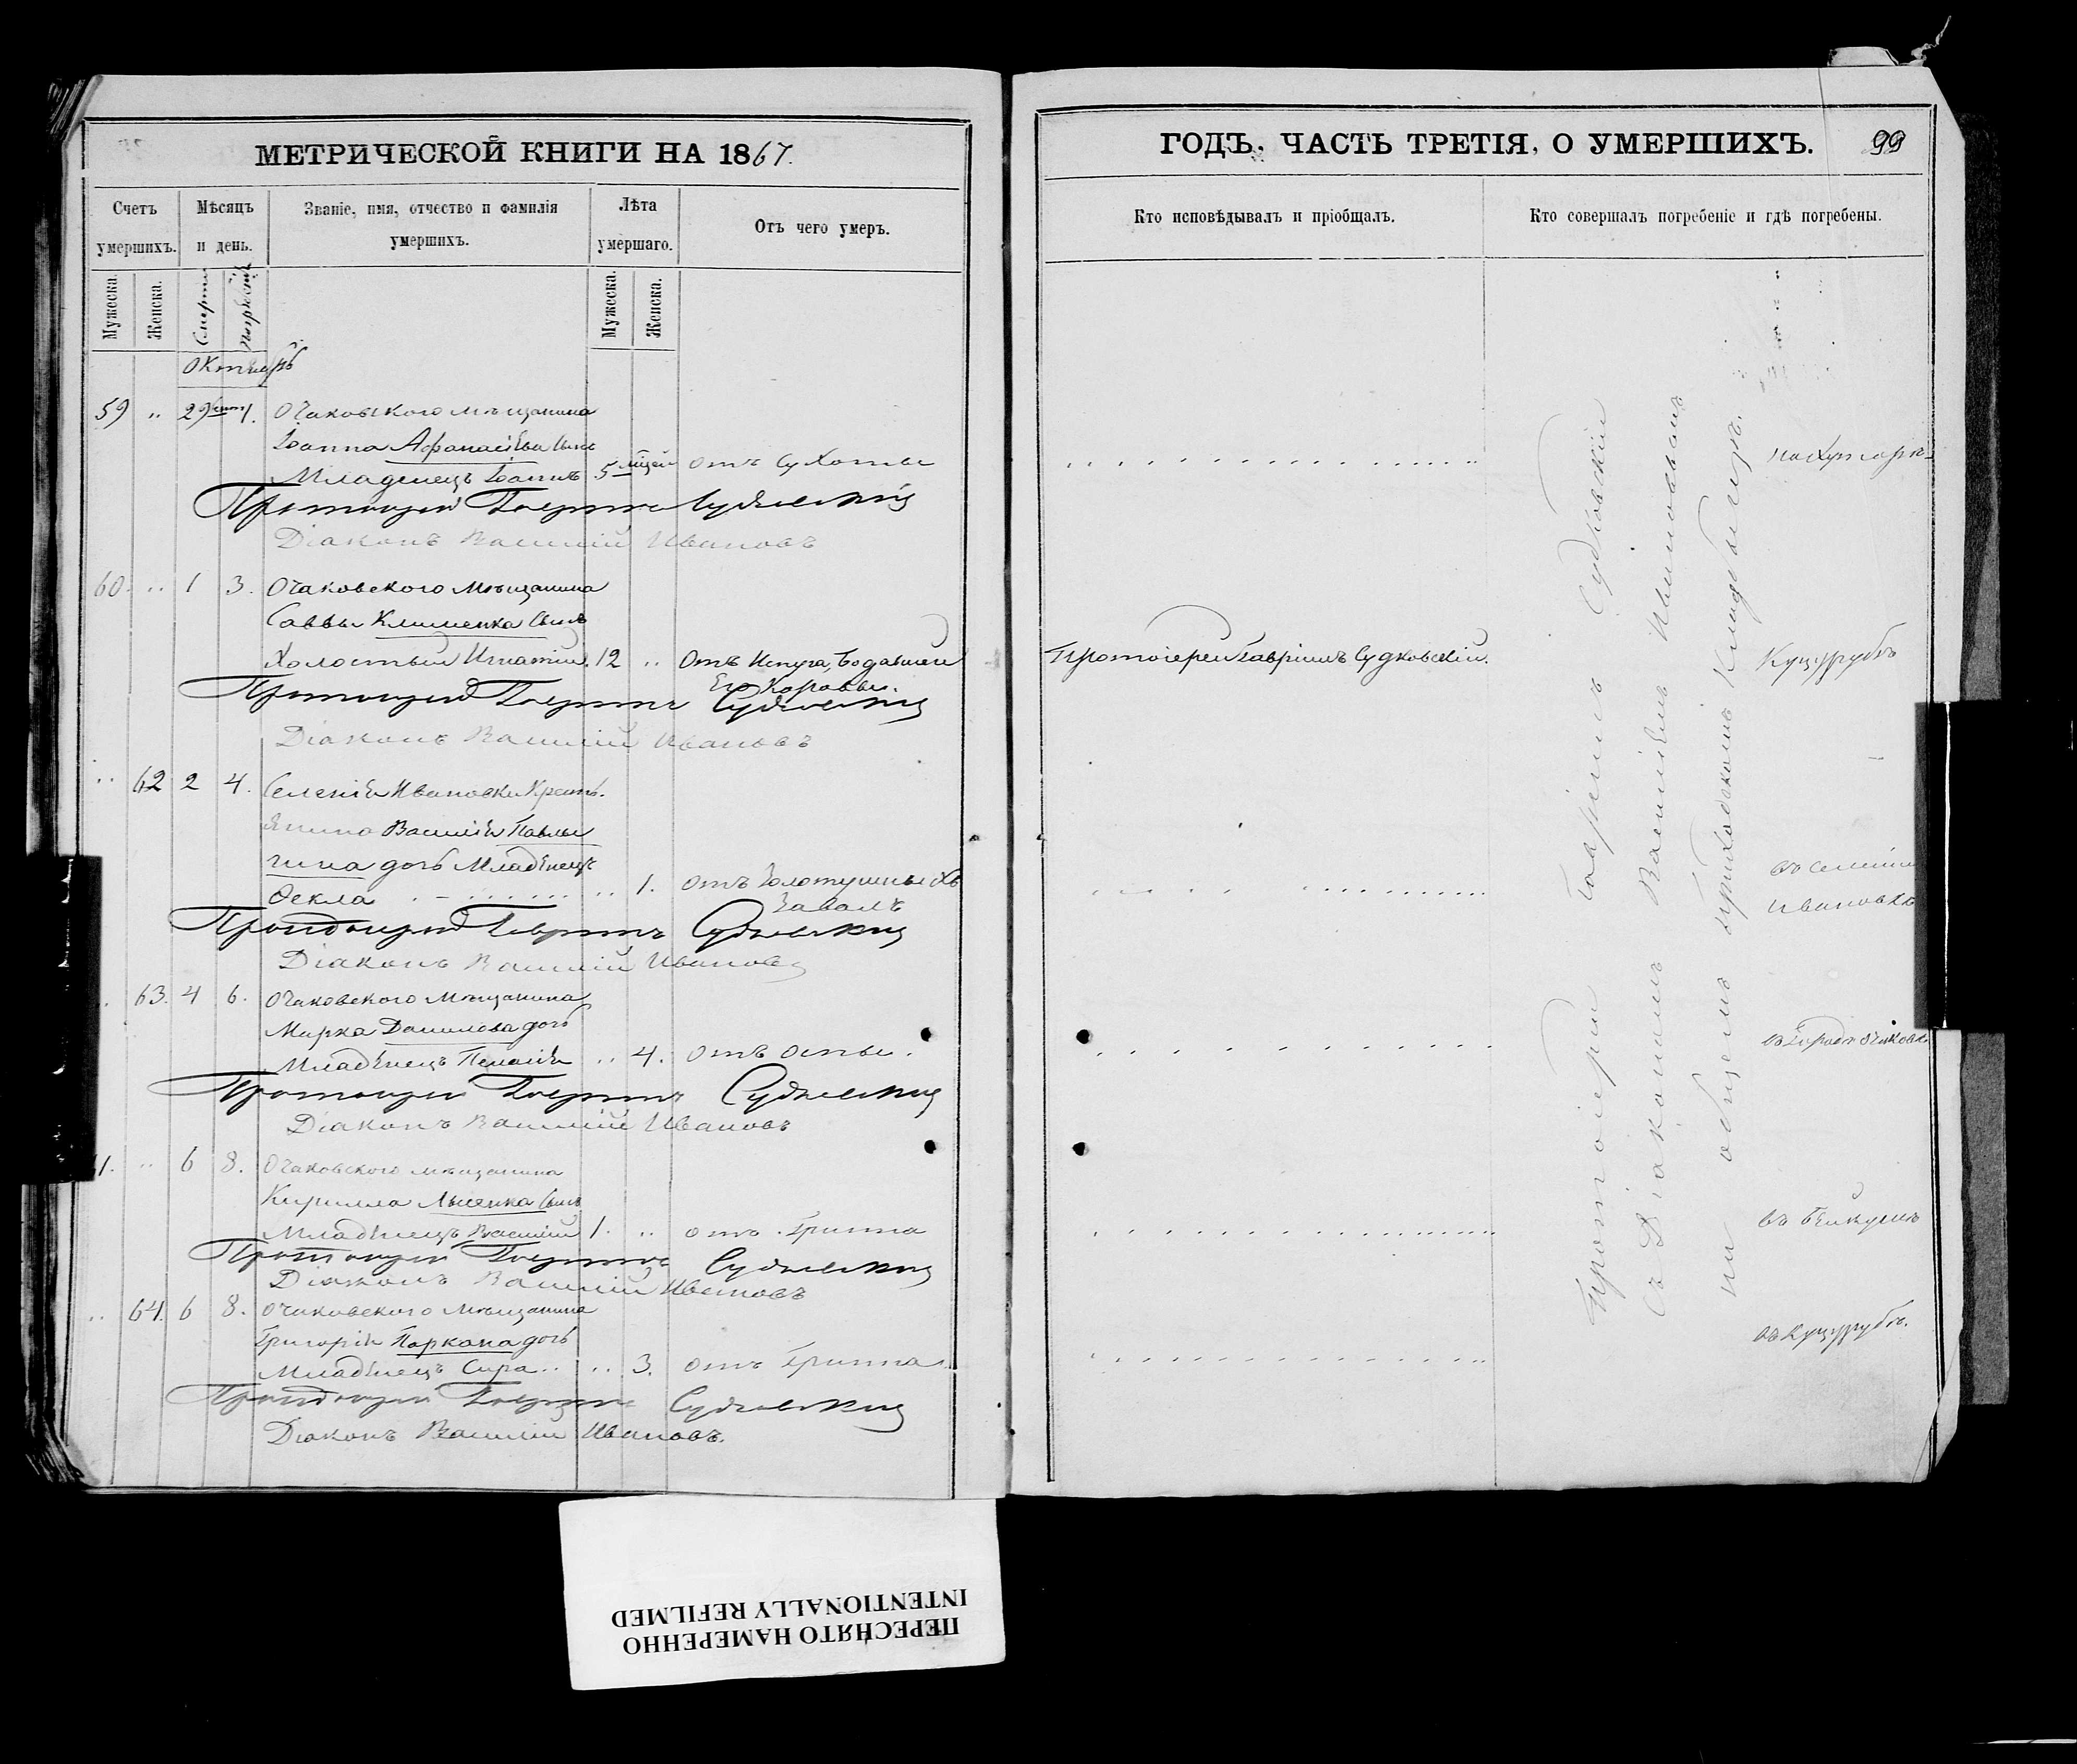 МЕТРИЧЕСКОЙ КНИГИ НА 1867.
Счетъ умершихъ.
Мѣсяцъ и день.
Званіе, имя, отчество и фамилія умершихъ.
Лѣта умершаго.
Отъ чего умеръ.
Мужеска.
Женска.
Смерти
Погребенія
Мужеска.
Женска.
Октябрь
59 „ 29 сент. 1. Очаковскаго мѣщанина
Іоанна Афанасіева сынъ
Младенецъ Іоаннъ 5 мѣсяц отъ Сухоты
Протоіерей Гавріилъ Судковскій
Діаконъ Василій Ивановъ
60. „ 1 3. Очаковскаго мѣщанина
Саввы Клименка сынъ
Холостый Игнатій. 12 „ Отъ Испуга, бодавшей
Его Коровы.
Протоіерей Гавріилъ Судковскій
Діаконъ Василій Ивановъ
„ 62 2 4. Селенія Ивановки Крестъ-
янина Василія Павлы
чина дочь Младенецъ
Ѳекла „ 1. отъ Золотушныхъ
Завалъ
Протоіерей Гавріилъ Судковскій
Діаконъ Василій Ивановъ
63. 4 6. Очаковскаго мѣщанина
Марка Данилова дочь
Младенецъ Пелагія „ 4. отъ оспы.
Протоіерей Гавріилъ Судковскій
Діаконъ Василій Ивановъ
1. „ 6 8. Очаковскаго мѣщанина
Кирилла Лысенка сынъ
Младенецъ Василій 1. „ отъ Гриппа
Протоіерей Гавріилъ Судковскій
Діаконъ Василій Ивановъ
„ 64. 6 8. Очаковскаго мѣщанина
Григорія Паркана дочь
Младенецъ Сира „ 3. отъ Гриппа
Протоіерей Гавріилъ Судковскій
Діаконъ Василій Ивановъ.
ГОДЪ, ЧАСТЬ ТРЕТІЯ, О УМЕРШИХЪ. 99
Кто исповѣдывалъ и пріобщалъ.
Кто совершалъ погребеніе и гдѣ погребены.
Протоіерей Гавріилъ Судковскій.
Протоіерей Гавріилъ Судковскій
Съ Діакономъ Василіемъ Ивановымъ
на общемъ приходскомъ кладбищѣ.
на хуторѣ
Куцурубъ
въ селеніи
Ивановкѣ
въ Городѣ Очаковѣ
въ Бейкушѣ
въ Куцурубѣ.
ПЕРЕСНЯТО НАМЕРЕННО
INTENTIONALLY REFILMED